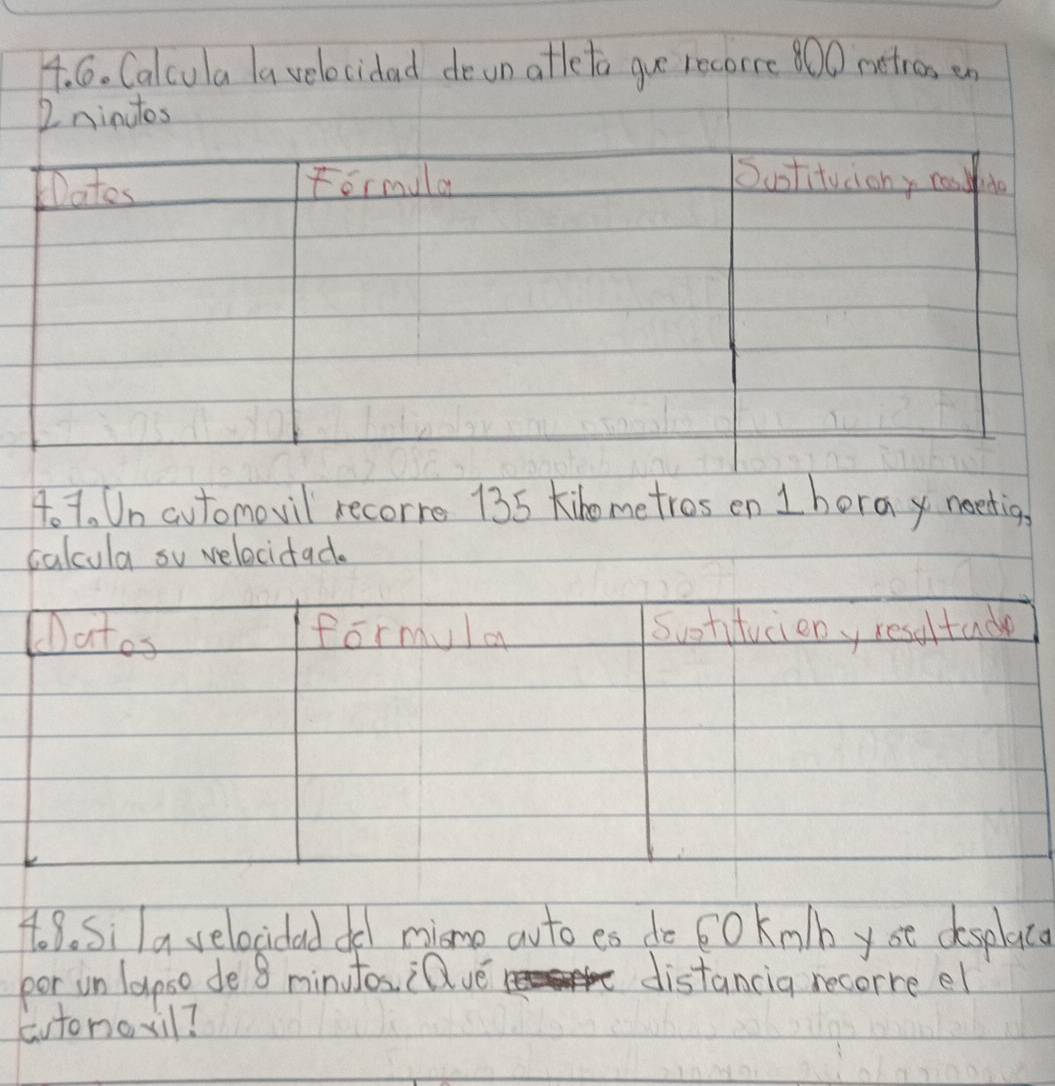 4.6. Calcula la velocidad de un atleta que recorre 800 metros en
2 minutos
Datos Fórmula Sustitución y resultado
4.7. Un automovil recorre 135 Kilometros en 1 hora y
calcula su velocidad.
Datos fórmula Sustitución y resultado
4.8. Si la velocidad del mismo auto es de 60 Km/h y se desplaza
por un lapso de 8 minutos. ¿Qué distancia recorre el
automovil?